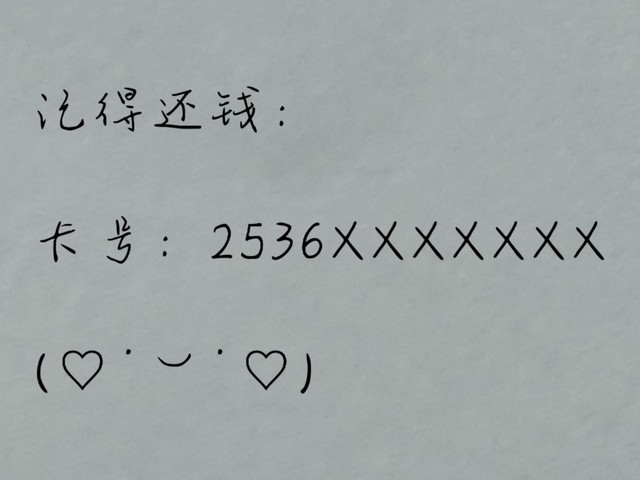 记得还钱：
卡号：2536XXXXXXX
(♡˙︶˙♡)